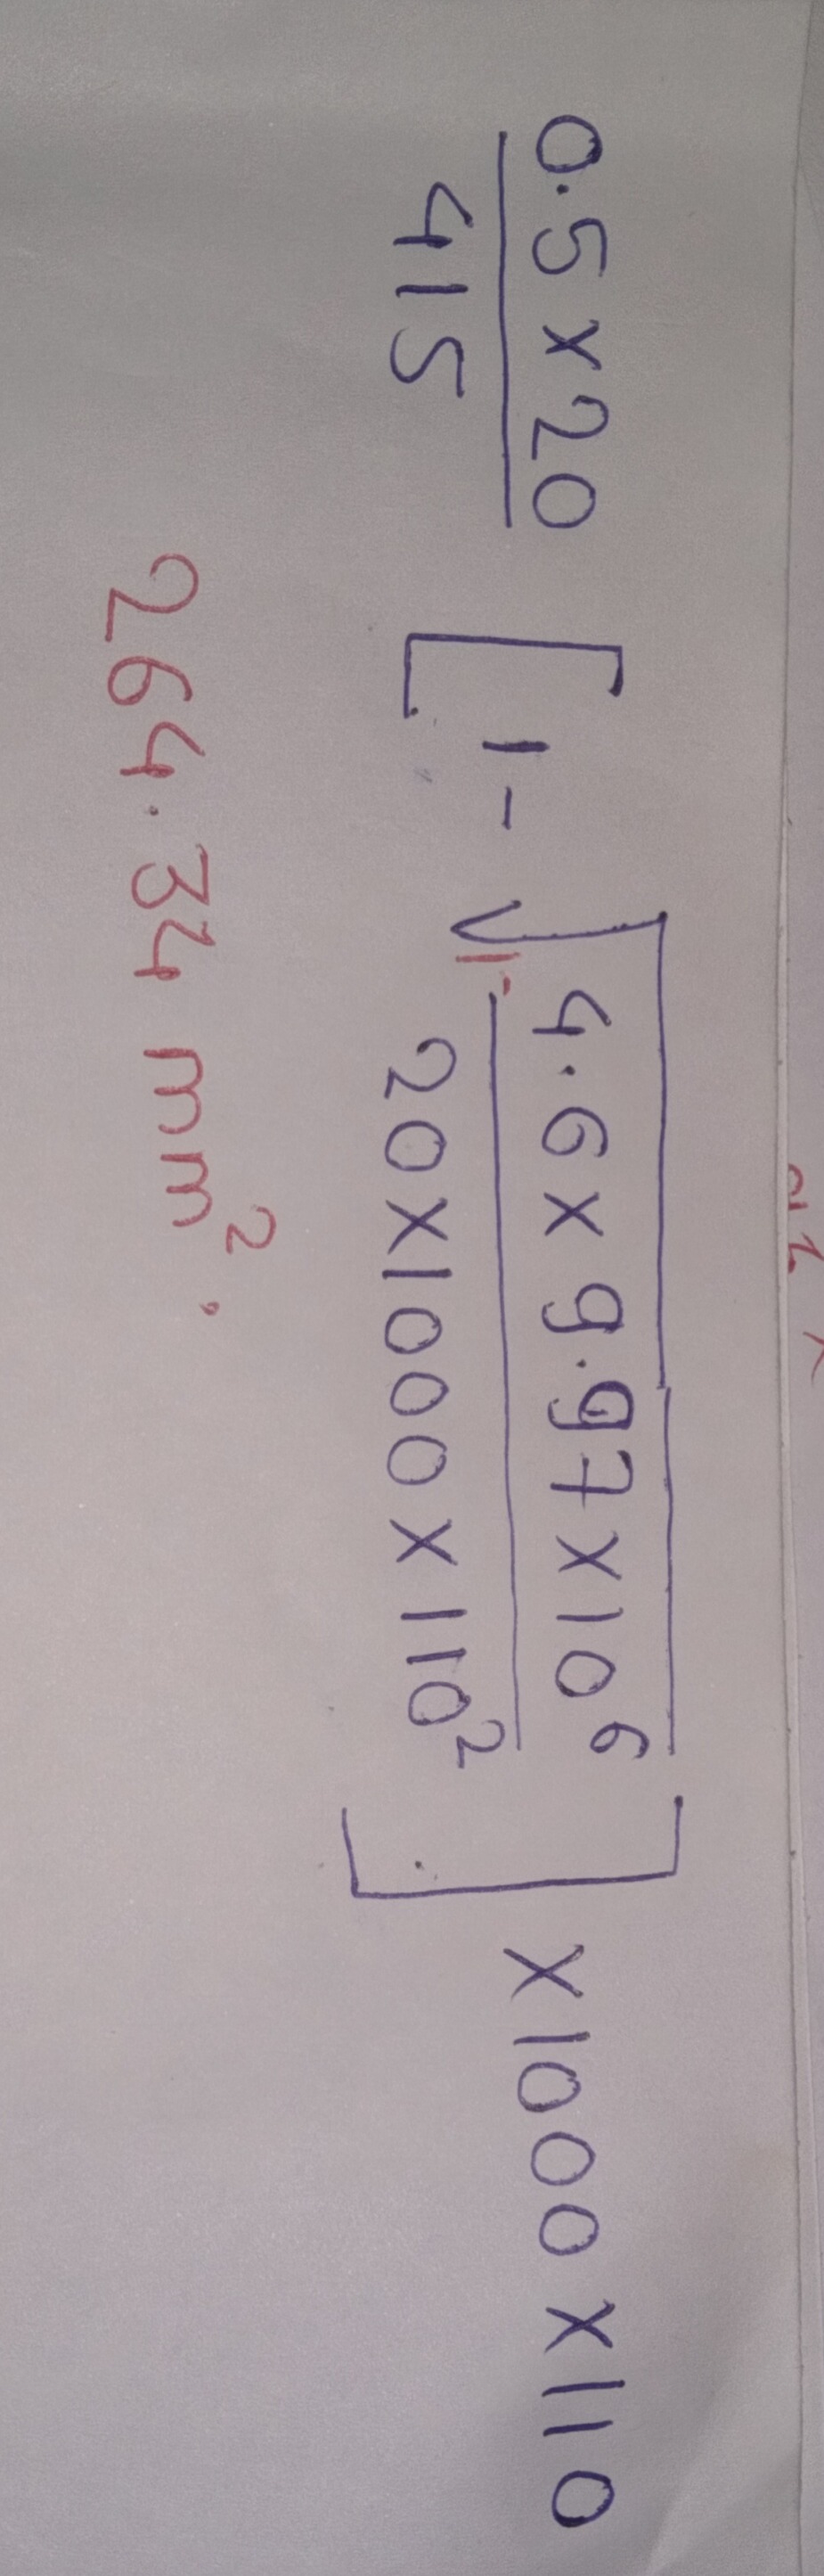 0.5 x 20 / 415 [ 1 - √( 1 - 4.6 x 9.97 x 10⁶ / 20 x 1000 x 110² ) ] x 1000 x 110
264.34 mm².